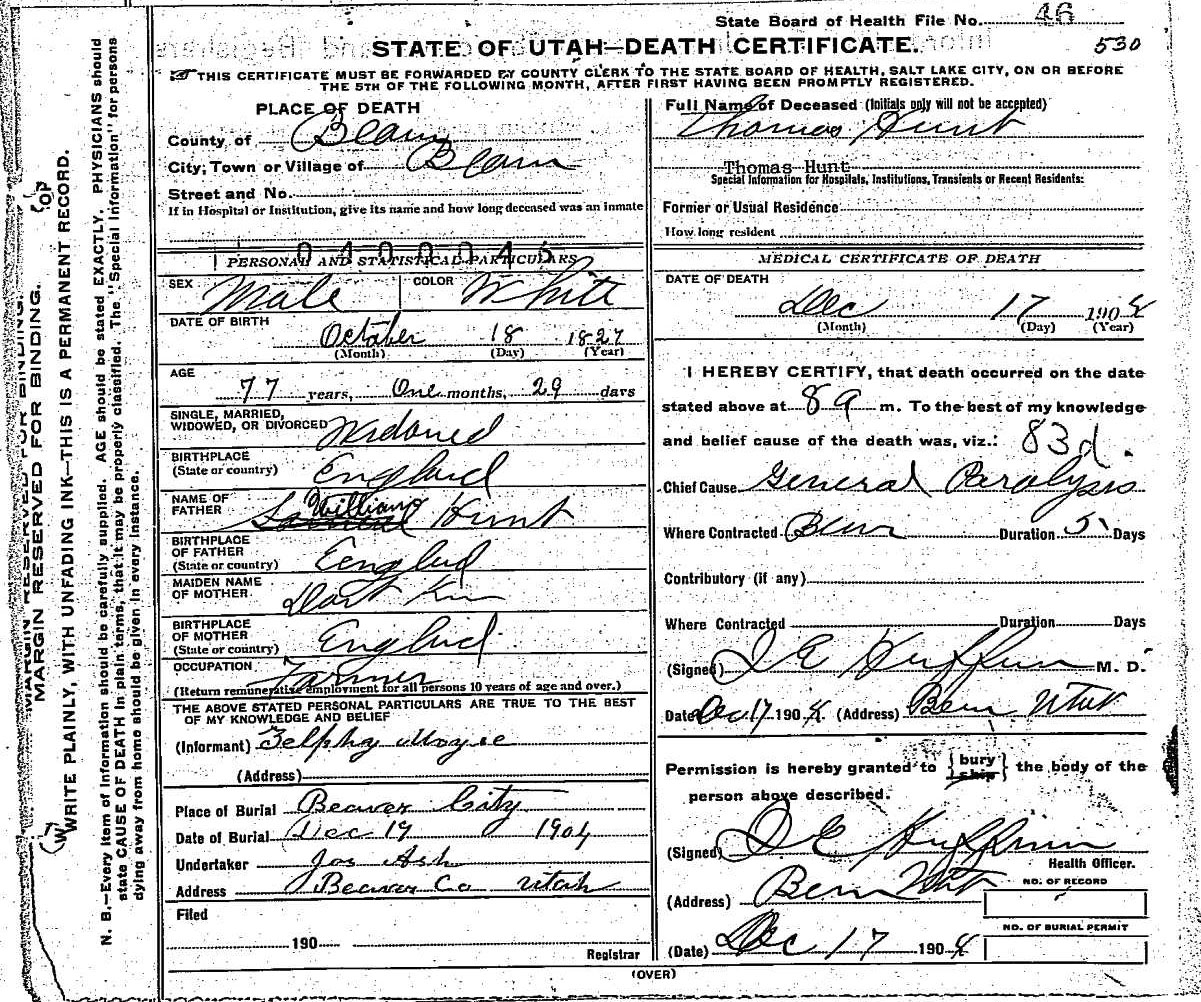 State Board of Health File No. 46
STATE OF UTAH—DEATH CERTIFICATE.
530
THIS CERTIFICATE MUST BE FORWARDED BY COUNTY CLERK TO THE STATE BOARD OF HEALTH, SALT LAKE CITY, ON OR BEFORE
THE 5TH OF THE FOLLOWING MONTH, AFTER FIRST HAVING BEEN PROMPTLY REGISTERED.
MARGIN RESERVED FOR BINDING.
WRITE PLAINLY, WITH UNFADING INK—THIS IS A PERMANENT RECORD.
N. B.—Every item of information should be carefully supplied. AGE should be stated EXACTLY. PHYSICIANS should
state CAUSE OF DEATH in plain terms, that it may be properly classified. The "Special Information" for persons
dying away from home should be given in every instance.
PLACE OF DEATH
County of
City, Town or Village of
Street and No.
If in Hospital or Institution, give its name and how long deceased was an inmate
0400046
PERSONAL AND STATISTICAL PARTICULARS
SEX Male COLOR White
DATE OF BIRTH
October 18 1827
(Month) (Day) (Year)
AGE
77 years, One months, 29 days
SINGLE, MARRIED,
WIDOWED, OR DIVORCED Widowed
BIRTHPLACE
(State or country) England
NAME OF
FATHER William Hunt
BIRTHPLACE
OF FATHER
(State or country)
MAIDEN NAME
OF MOTHER
BIRTHPLACE
OF MOTHER
(State or country)
OCCUPATION Farmer
(Return remunerative employment for all persons 10 years of age and over.)
THE ABOVE STATED PERSONAL PARTICULARS ARE TRUE TO THE BEST
OF MY KNOWLEDGE AND BELIEF
(Informant)
(Address)
Place of Burial Beaver City
Date of Burial Dec 19 1904
Undertaker Jos Ash
Address Beaver Co Utah
Filed
190
Registrar
Full Name of Deceased (Initials only will not be accepted)
Thomas Hunt
Thomas Hunt
Special Information for Hospitals, Institutions, Transients or Recent Residents:
Former or Usual Residence
How long resident
MEDICAL CERTIFICATE OF DEATH
DATE OF DEATH
Dec 17 1904
(Month) (Day) (Year)
I HEREBY CERTIFY, that death occurred on the date
stated above at 8 a m. To the best of my knowledge
and belief cause of the death was, viz.: 83d.
Chief Cause General Paralysis
Where Contracted Duration 5 Days
Contributory (if any)
Where Contracted Duration Days
(Signed) M. D.
Date Dec 17 1904 (Address)
Permission is hereby granted to { bury ship } the body of the
person above described.
(Signed)
Health Officer.
(Address)
NO. OF RECORD
NO. OF BURIAL PERMIT
(Date) Dec 17 1904
(OVER)